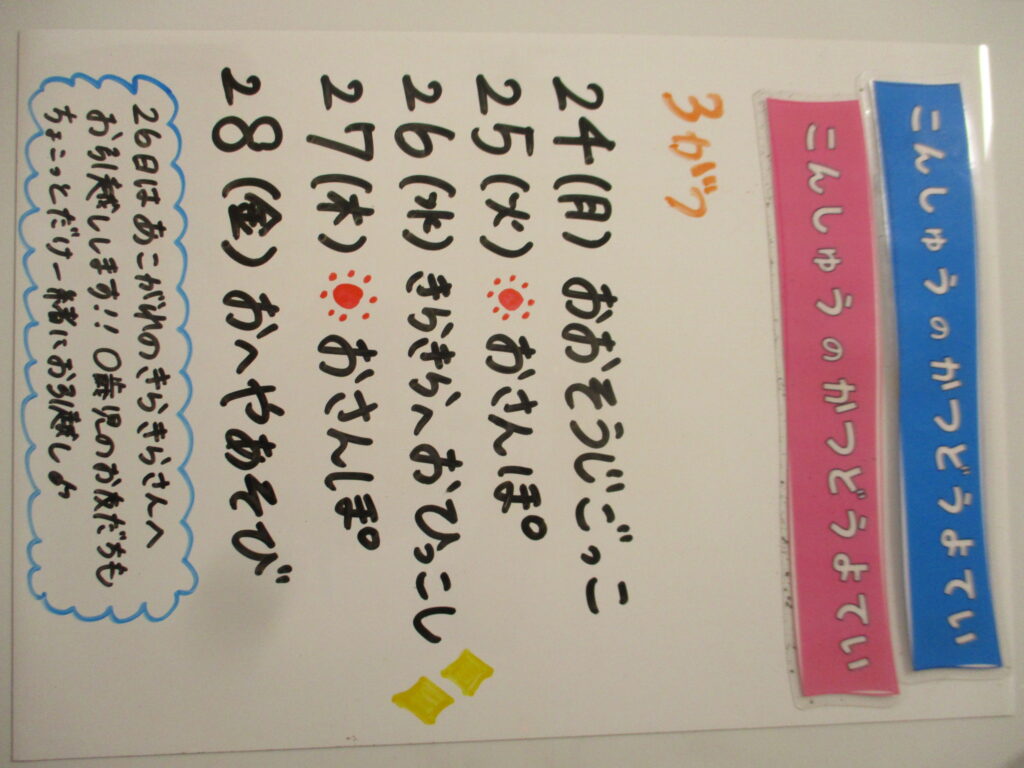 こんしゅうのかつどうよてい
こんしゅうのかつどうよてい
3がつ
24(月) おおそうじごっこ
25(火) おさんぽ
26(水) きらきらへおひっこし
27(木) おさんぽ
28(金) おへやあそび
26日はあこがれのきらきらさんへ
お引越しします!! 0歳児のお友だちも
ちょこっとだけ一緒にお引越し♪